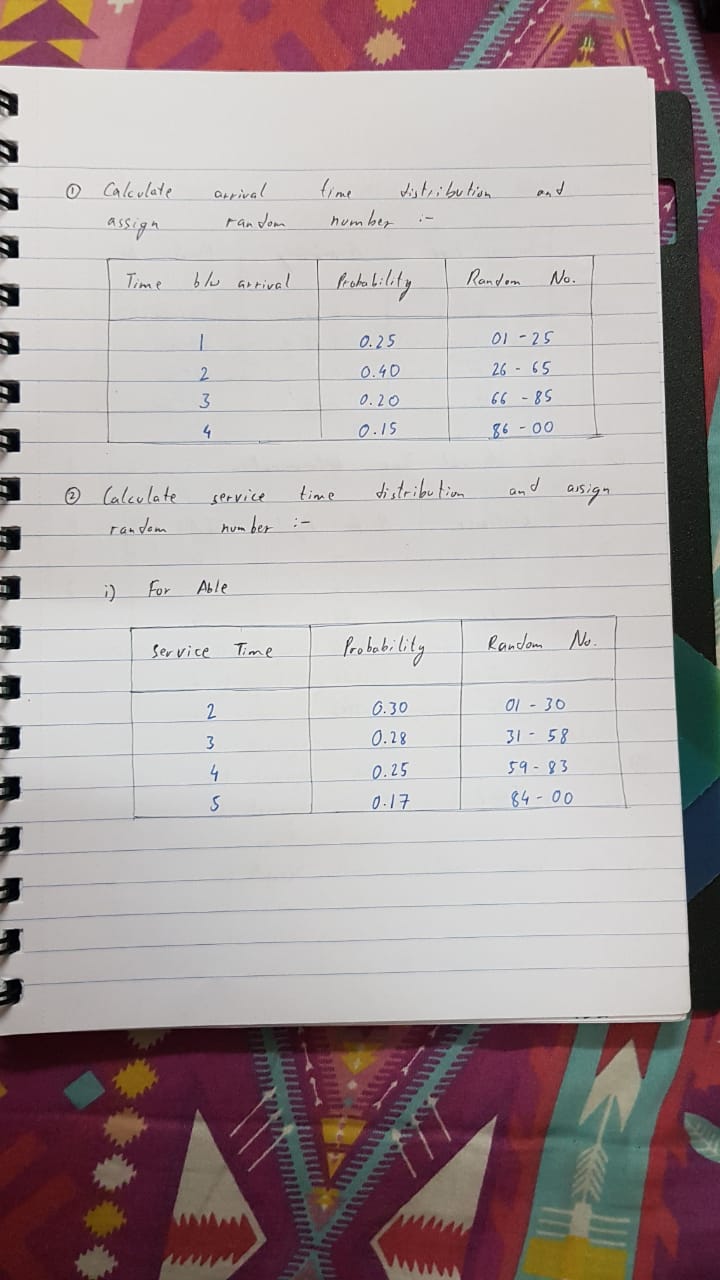 ① Calculate arrival time distribution and
assign random number :-
Time b/w arrival Probability Random No.
1 0.25 01 - 25
2 0.40 26 - 65
3 0.20 66 - 85
4 0.15 86 - 00
② Calculate service time distribution and assign
random number :-
i) For Able
Service Time Probability Random No.
2 0.30 01 - 30
3 0.28 31 - 58
4 0.25 59 - 83
5 0.17 84 - 00